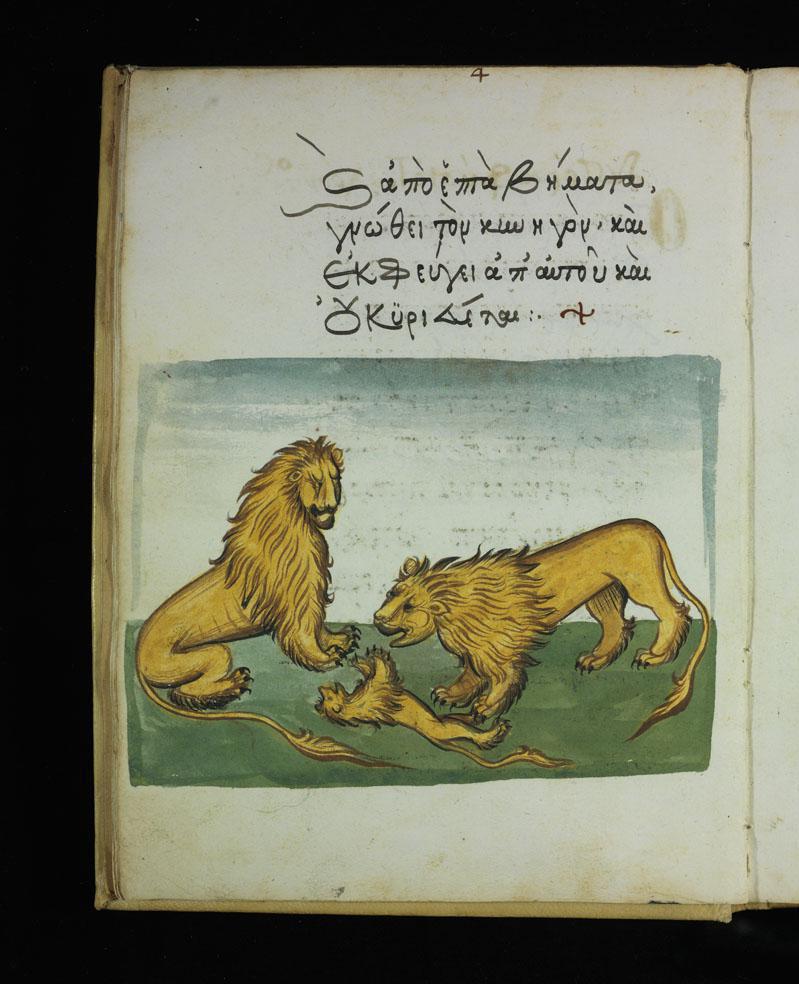 4
ἀπὸ ἑπτὰ βήματα,
γνώθει τὸν κυνηγὸν, καὶ
ἐκφεύγει ἀπ' αὐτοῦ καὶ
οὐ κϋριεύεται :·